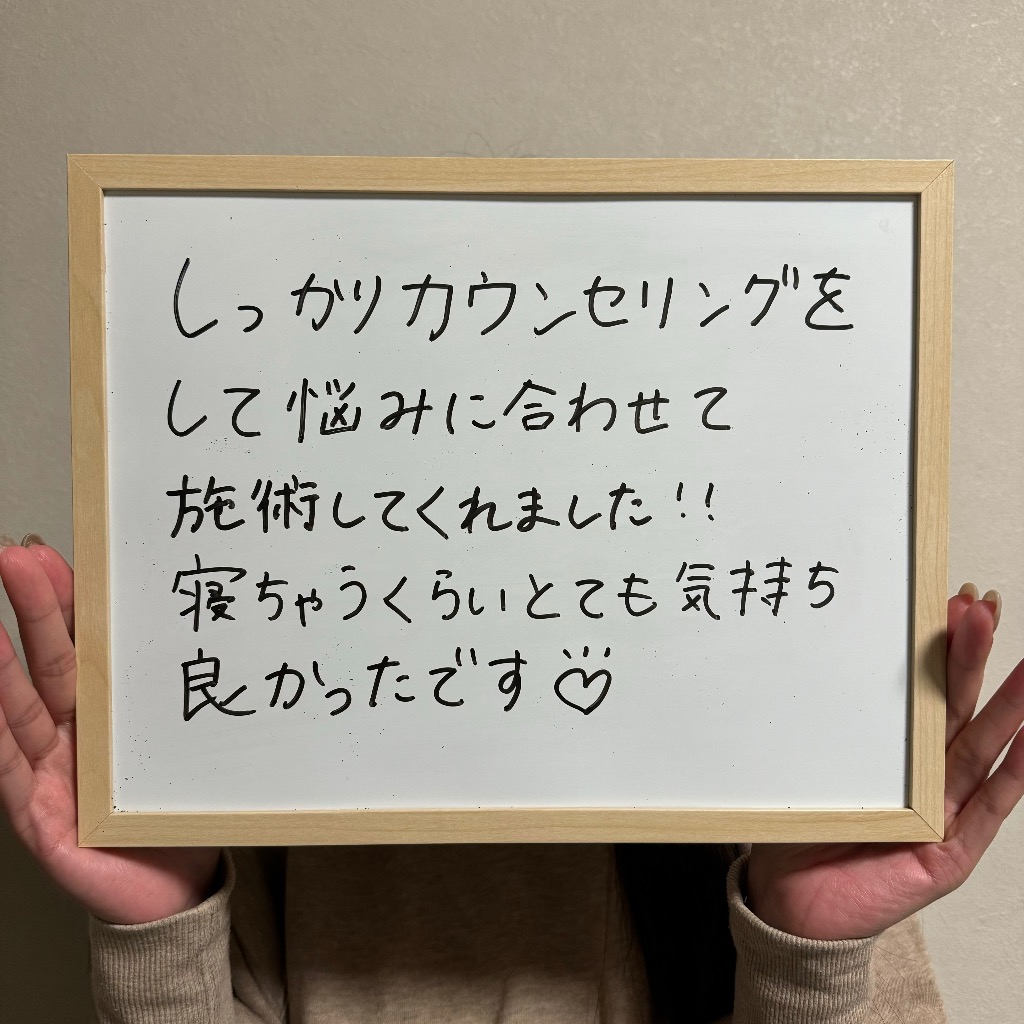 しっかりカウンセリングを
して悩みに合わせて
施術してくれました!!
寝ちゃうくらいとても気持ち
良かったです♡